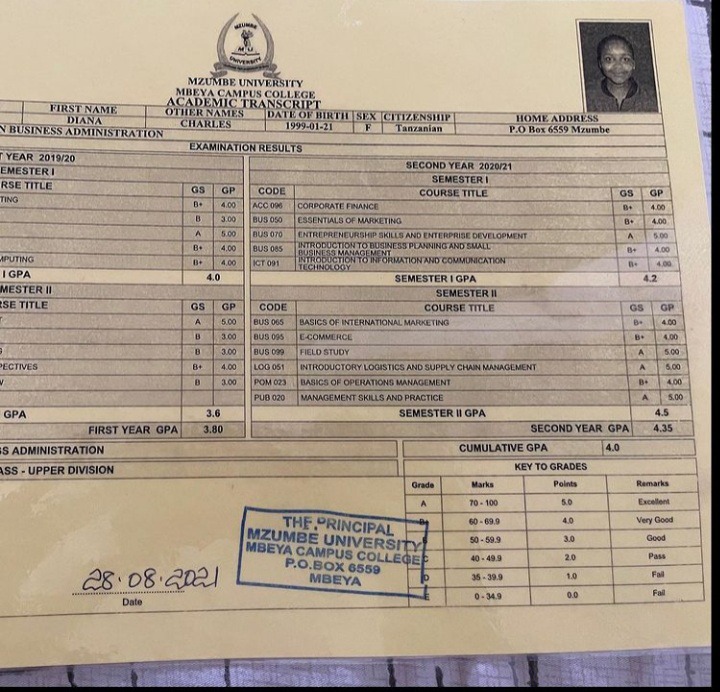 MZUMBE
M U
UNIVERSITY
MZUMBE UNIVERSITY
MBEYA CAMPUS COLLEGE
ACADEMIC TRANSCRIPT
FIRST NAME OTHER NAMES DATE OF BIRTH SEX CITIZENSHIP HOME ADDRESS
DIANA CHARLES 1999-01-21 F Tanzanian P.O Box 6559 Mzumbe
N BUSINESS ADMINISTRATION
EXAMINATION RESULTS
T YEAR 2019/20
EMESTER I
RSE TITLE GS GP
TING B+ 4.00
B 3.00
A 5.00
B+ 4.00
MPUTING B+ 4.00
I GPA 4.0
MESTER II
SE TITLE GS GP
A 5.00
B 3.00
B 3.00
PECTIVES B+ 4.00
B 3.00
GPA 3.6
FIRST YEAR GPA 3.80
SECOND YEAR 2020/21
SEMESTER I
CODE COURSE TITLE GS GP
ACC 096 CORPORATE FINANCE B+ 4.00
BUS 050 ESSENTIALS OF MARKETING B+ 4.00
BUS 070 ENTREPRENEURSHIP SKILLS AND ENTERPRISE DEVELOPMENT A 5.00
BUS 085 INTRODUCTION TO BUSINESS PLANNING AND SMALL
BUSINESS MANAGEMENT B+ 4.00
ICT 091 INTRODUCTION TO INFORMATION AND COMMUNICATION
TECHNOLOGY B+ 4.00
SEMESTER I GPA 4.2
SEMESTER II
CODE COURSE TITLE GS GP
BUS 065 BASICS OF INTERNATIONAL MARKETING B+ 4.00
BUS 095 E-COMMERCE B+ 4.00
BUS 099 FIELD STUDY A 5.00
LOG 051 INTRODUCTORY LOGISTICS AND SUPPLY CHAIN MANAGEMENT A 5.00
POM 023 BASICS OF OPERATIONS MANAGEMENT B+ 4.00
PUB 020 MANAGEMENT SKILLS AND PRACTICE A 5.00
SEMESTER II GPA 4.5
SECOND YEAR GPA 4.35
SS ADMINISTRATION
CUMULATIVE GPA 4.0
ASS - UPPER DIVISION
KEY TO GRADES
Grade Marks Points Remarks
A 70 - 100 5.0 Excellent
60 - 69.9 4.0 Very Good
50 - 59.9 3.0 Good
40 - 49.9 2.0 Pass
D 35 - 39.9 1.0 Fail
E 0 - 34.9 0.0 Fail
THE PRINCIPAL
MZUMBE UNIVERSITY
MBEYA CAMPUS COLLEGE
P.O.BOX 6559
MBEYA
28.08.2021
Date